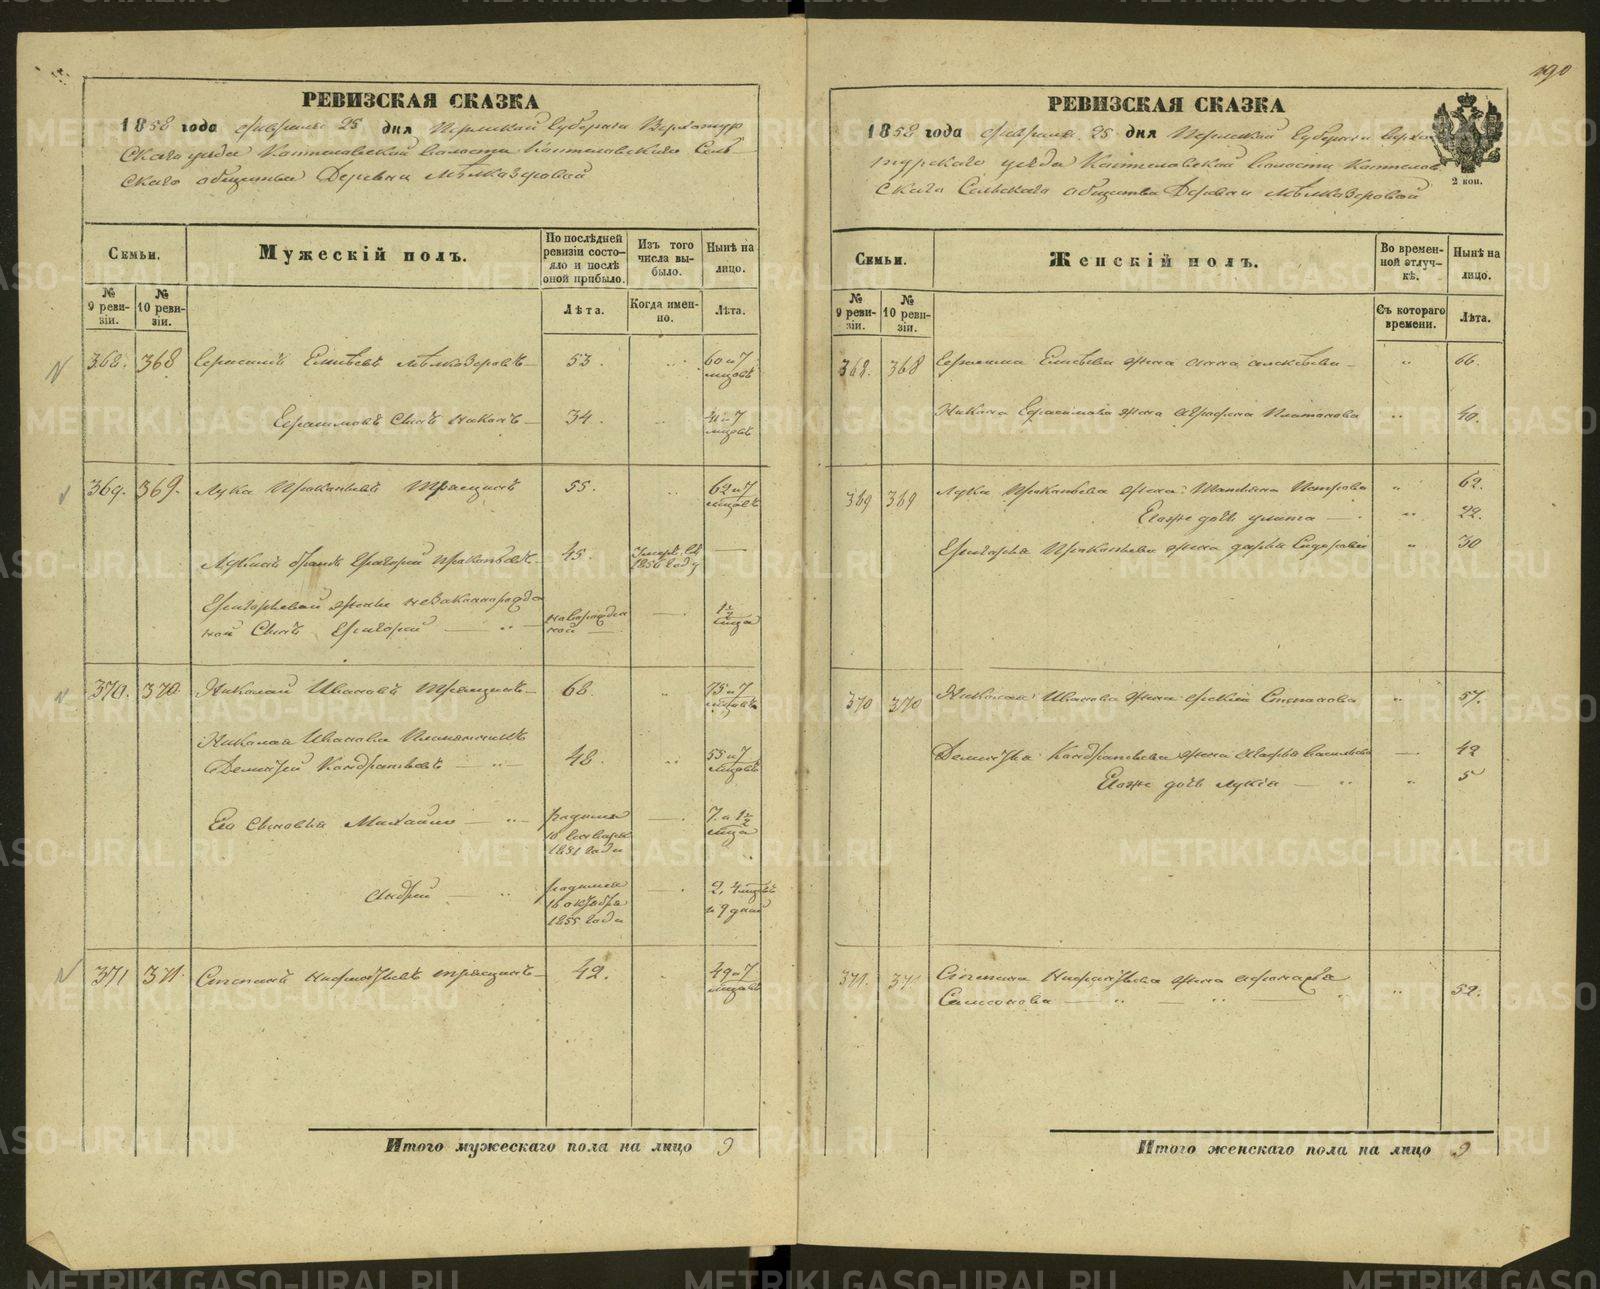 190
РЕВИЗСКАЯ СКАЗКА
1858 года февраля 25 дня Пермской Губернии Верхотур
скаго уезда Коптеловской волости Коптеловскаго Сель
скаго общества Деревни Мелкозеровой
Семьи.
Мужескій полъ.
По послѣдней ревизіи состояло и послѣ оной прибыло.
Изъ того числа выбыло.
Нынѣ на лицо.
№ 9 ревизіи.
№ 10 ревизіи.
Лѣта.
Когда именно.
Лѣта.
368. 368 Герасимъ Елисѣевъ Мѣлкозеровъ 53. 60 и 7 мцовъ
Герасимовъ Сынъ Никонъ 34. 41 и 7 мцовъ
369. 369. Лука Прокопьевъ 55. 62 и 7 мцовъ
братъ Григорий Прокопьевъ 45. 1856 году
Григорьевой жены незаконнорожде
ной Сынъ Григорий новорожденной 1½ мца
370. 370. Николай Ивановъ 68. 75 и 7 мцовъ
Николая Иванова Племянникъ
Дементей Кондратьевъ 48. 55 и 7 мцовъ
Его Сыновья Михайло родился 1851 года 7. и 1½ мца
Андрей родился 16 октября 1855 года 2, 4 мцовъ и 9 дней
371 371. Степанъ 42. 49 и 7 мцовъ
Итого мужескаго пола на лицо 9
РЕВИЗСКАЯ СКАЗКА
1858 года февраля 25 дня Пермской Губернии Верхо
турскаго уезда Коптеловской волости Коптелов
скаго Сельскаго общества Деревни Мѣлкозеровой
2 коп.
Семьи.
Женскій полъ.
Во временной отлучкѣ.
Нынѣ на лицо.
№ 9 ревизіи.
№ 10 ревизіи.
Съ котораго времени.
Лѣта.
368. 368 Герасима Елисѣева жена Анна Алексѣева 66.
Никона Герасимова жена Аграфена Платонова 40.
369 369 Луки Прокопьева жена Татьяна Петрова 62.
Ево же дочь Улита 22.
Григорья Прокопьева жена Дарья Сидорова 30
370 370 Николая Иванова жена Степанова 57.
Дементья Кондратьева жена Марфа Васильева 42
Ево же дочь Лукия 5
371. 371. Степана жена
Самсонова 52.
Итого женскаго пола на лицо 9
METRIKI.GASO-URAL.RU